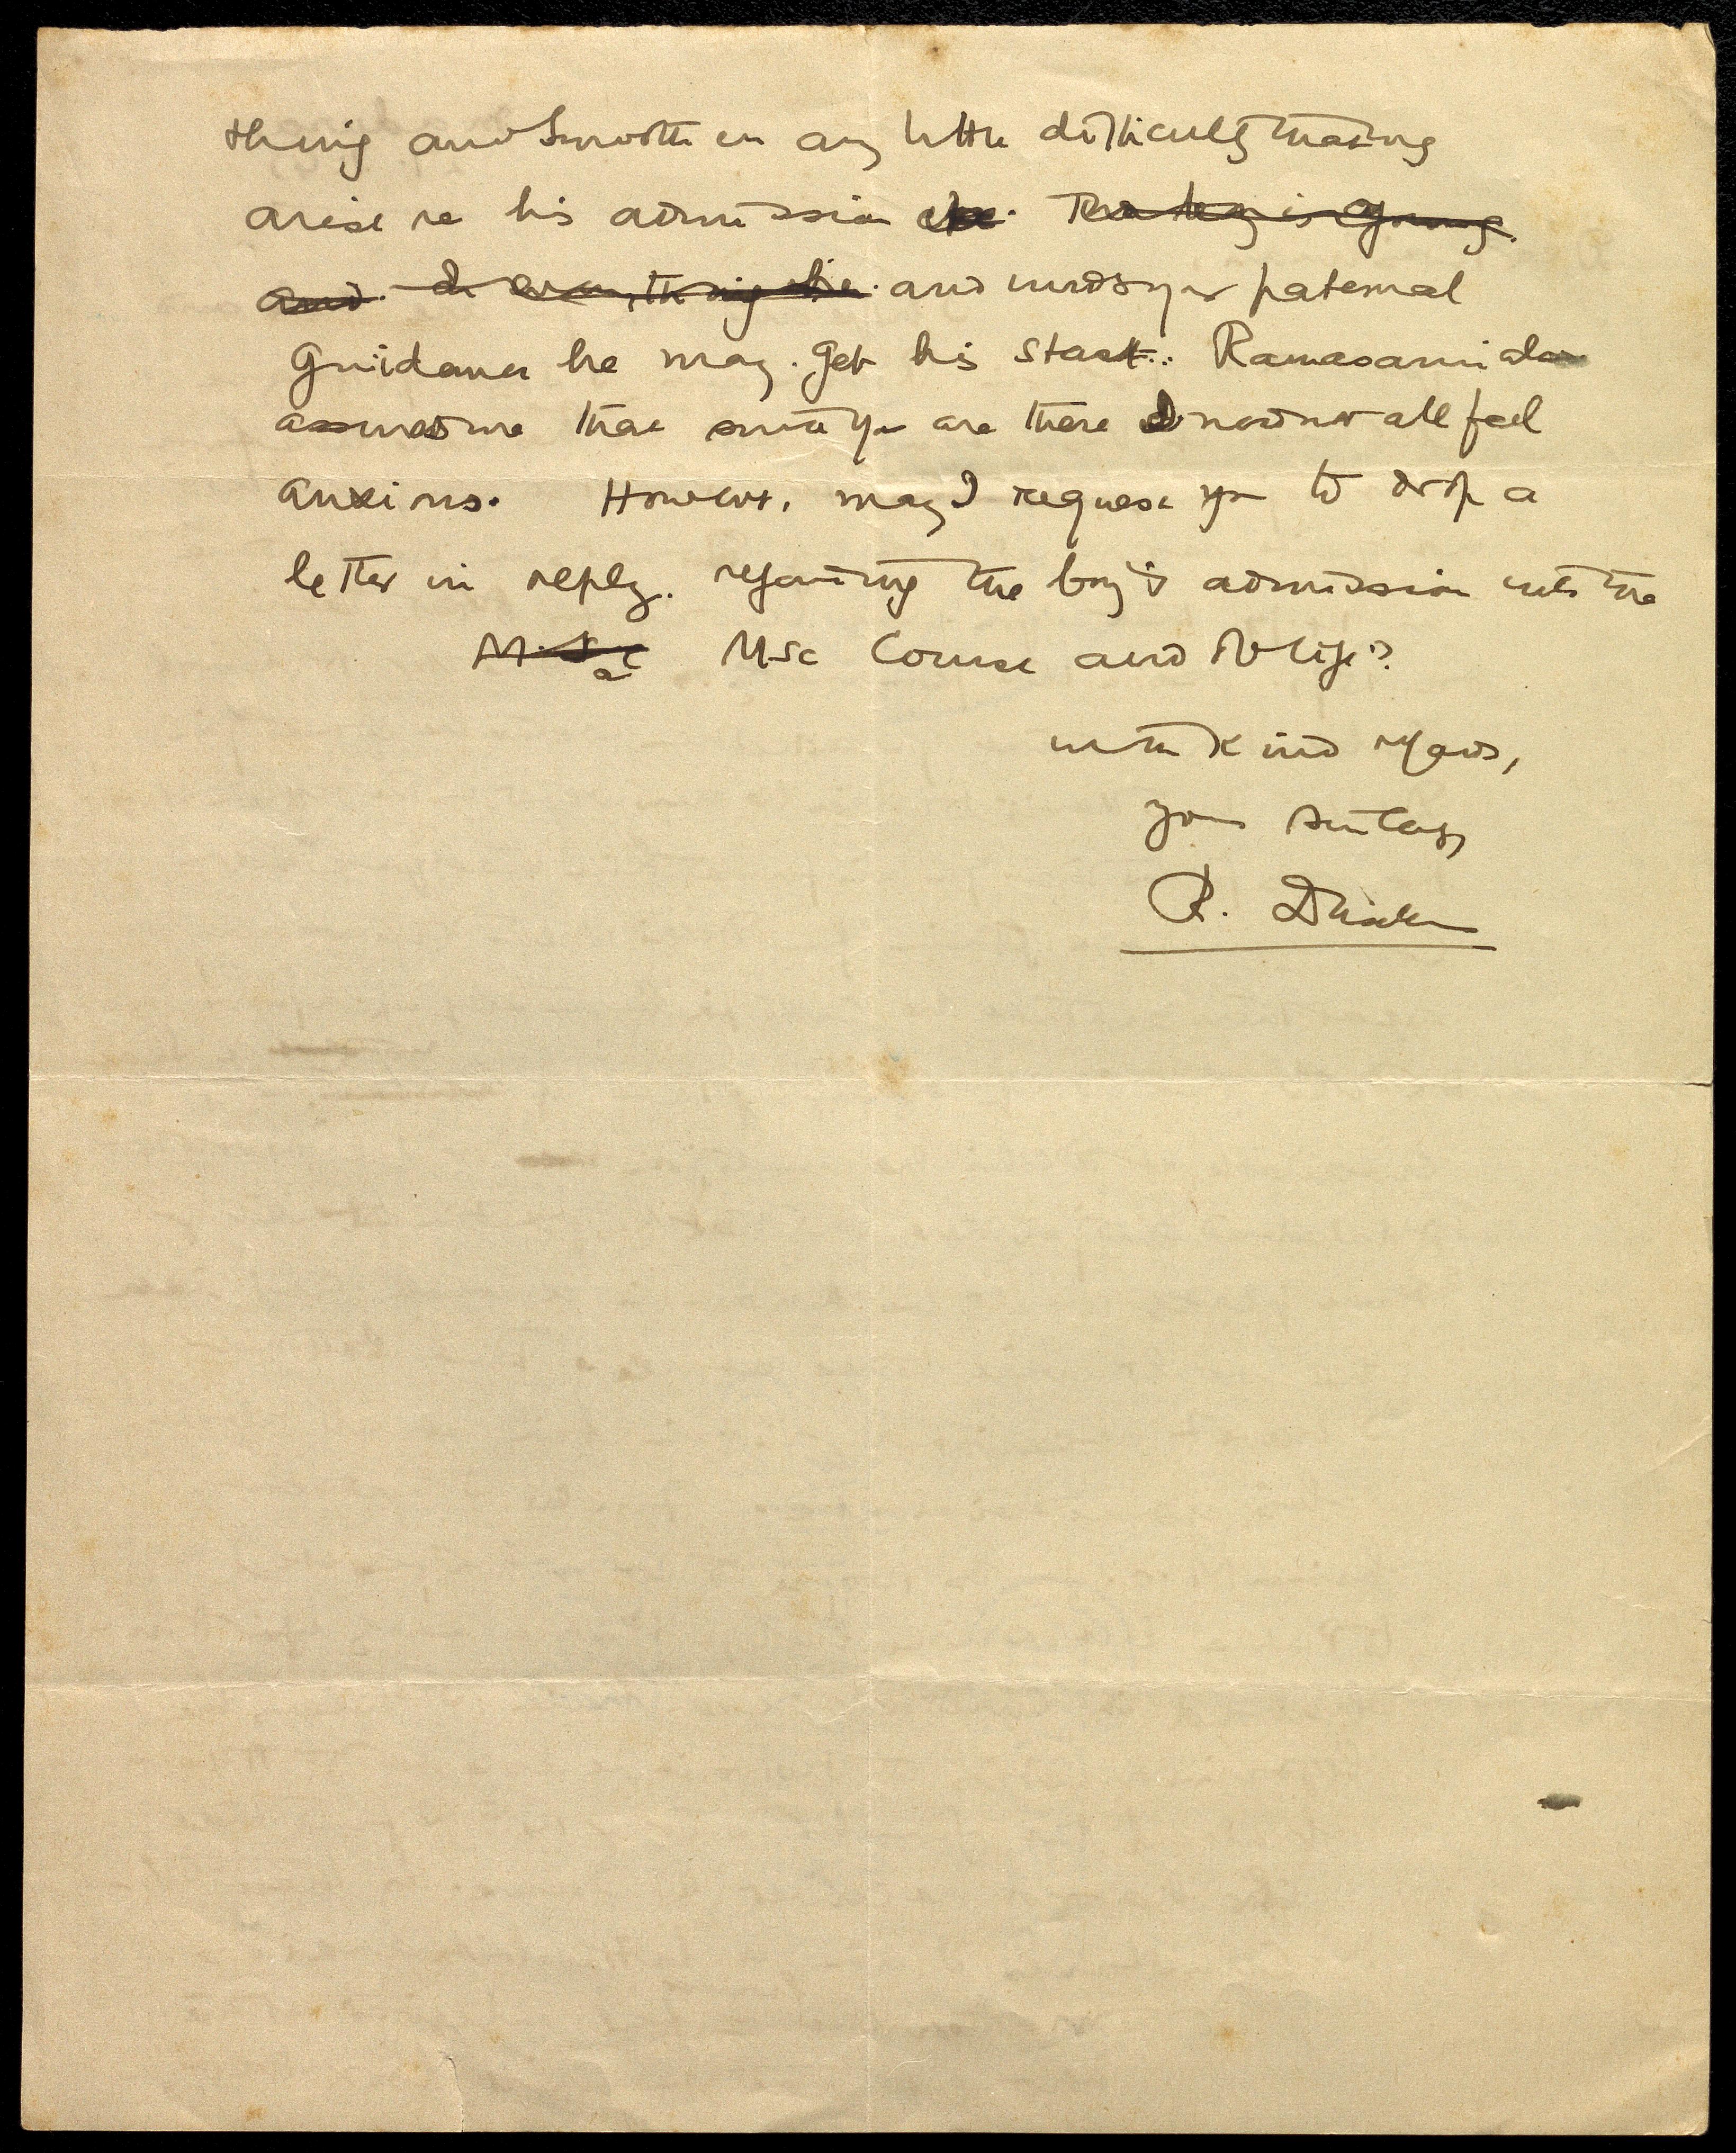 thing and smoothen any little difficulty that may
arise re his admission etc. The boy is young
and in everything else. and under your paternal
guidance he may. get his start. Ramasami also
assured me that since you are there I need not all feel
anxious. However, may I request you to drop a
letter in reply. regarding the boy's admission into the
M.Sc MSc Course and oblige?
with kind regards,
yours sincerely
R.